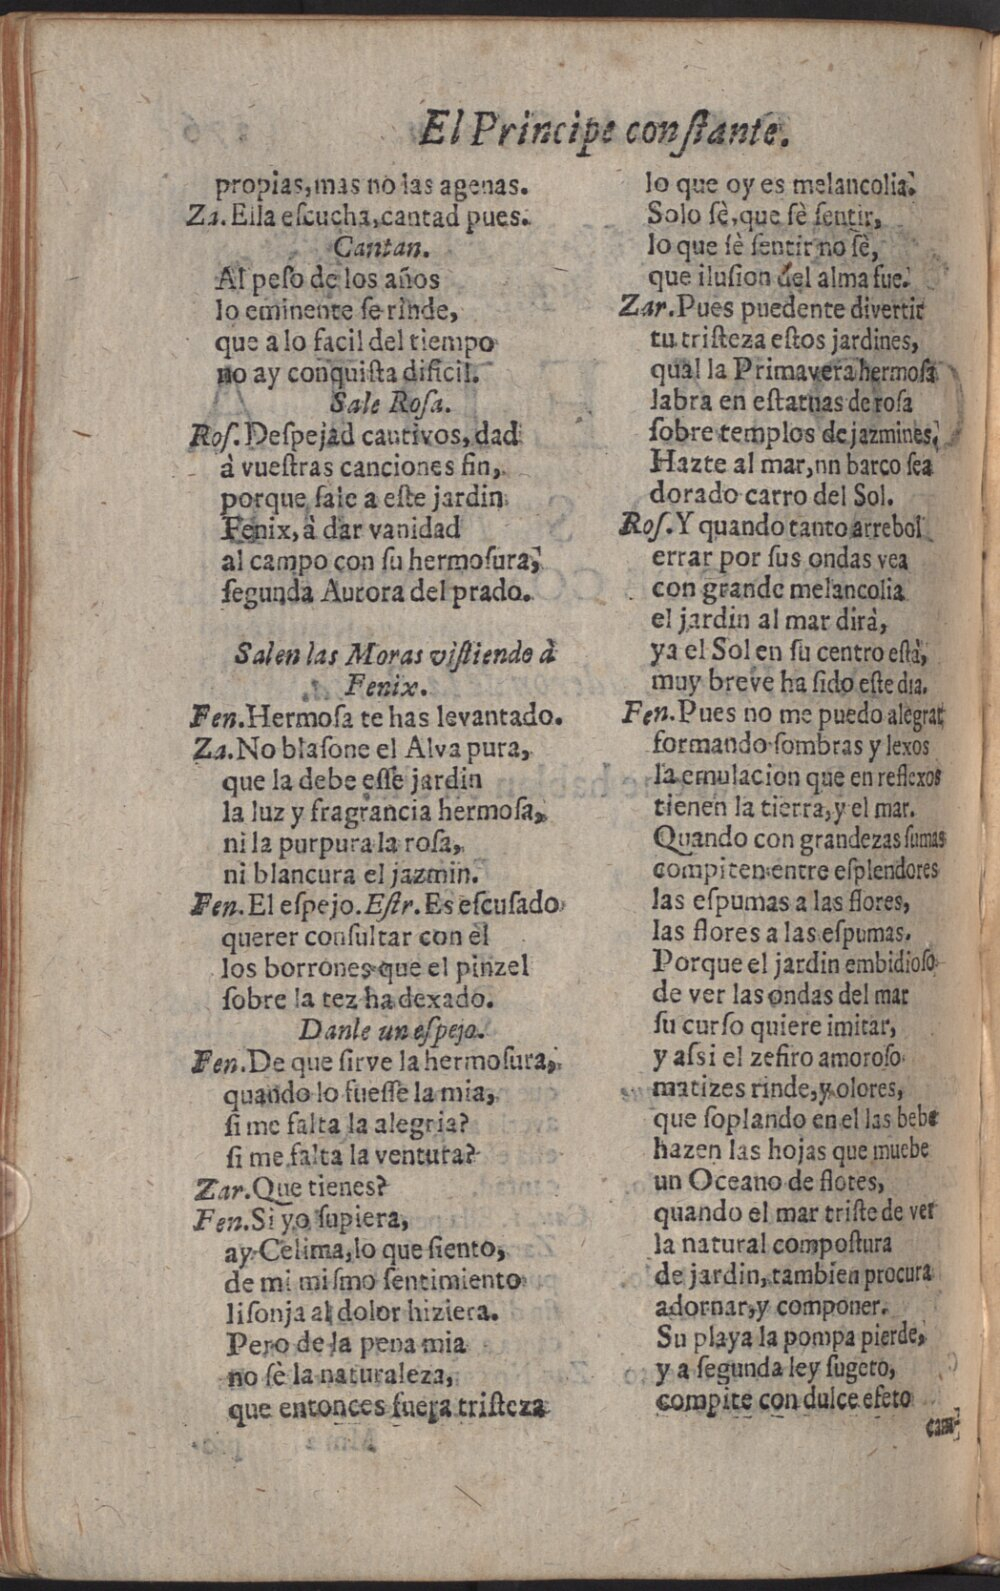 El Principe conſtante.
propias, mas no las agenas.
Za. Ella eſcucha, cantad pues.
Cantan.
Al peſo de los años
lo eminente ſe rinde,
que a lo facil del tiempo
no ay conquiſta dificil.
Sale Roſa.
Roſ. Deſpejad cautivos, dad
à vueſtras canciones fin,
porque ſale a eſte jardin
Fenix, à dar vanidad
al campo con ſu hermoſura,
ſegunda Aurora del prado.
Salen las Moras viſtiendo à
Fenix.
Fen. Hermoſa te has levantado.
Za. No blaſone el Alva pura,
que la debe eſſe jardin
la luz y fragrancia hermoſa,
ni la purpura la roſa,
ni blancura el jazmin.
Fen. El eſpejo. Eſtr. Es eſcuſado
querer conſultar con èl
los borrones que el pinzel
ſobre la tez ha dexado.
Danle un eſpejo.
Fen. De que ſirve la hermoſura,
quando lo fueſſe la mia,
ſi me falta la alegria?
ſi me falta la ventura?
Zar. Que tienes?
Fen. Si yo ſupiera,
ay Celima, lo que ſiento,
de mi miſmo ſentimiento
liſonja al dolor hiziera.
Pero de la pena mia
no ſè la naturaleza,
que entonces fuera triſteza
lo que oy es melancolia.
Solo ſè, que ſè ſentir,
lo que ſè ſentir no ſè,
que iluſion del alma fue.
Zar. Pues puedente divertir
tu triſteza eſtos jardines,
qual la Primavera hermoſa
labra en eſtatuas de roſa
ſobre templos de jazmines,
Hazte al mar, nn barco ſea
dorado carro del Sol.
Roſ. Y quando tanto arrebol
errar por ſus ondas vea
con grande melancolia
el jardin al mar dirà,
ya el Sol en ſu centro eſtà,
muy breve ha ſido eſte dia.
Fen. Pues no me puedo alegrar
formando ſombras y lexos
la emulacion que en reflexos
tienen la tierra, y el mar.
Quando con grandezas ſumas
compiten entre eſplendores
las eſpumas a las flores,
las flores a las eſpumas.
Porque el jardin embidioſo
de ver las ondas del mar
ſu curſo quiere imitar,
y aſsi el zefiro amoroſo
matizes rinde, y olores,
que ſoplando en el las bebe
hazen las hojas que muebe
un Oceano de flores,
quando el mar triſte de ver
la natural compoſtura
de jardin, tambien procura
adornar, y componer.
Su playa la pompa pierde,
y a ſegunda ley ſugeto,
compite con dulce efeto
cam-